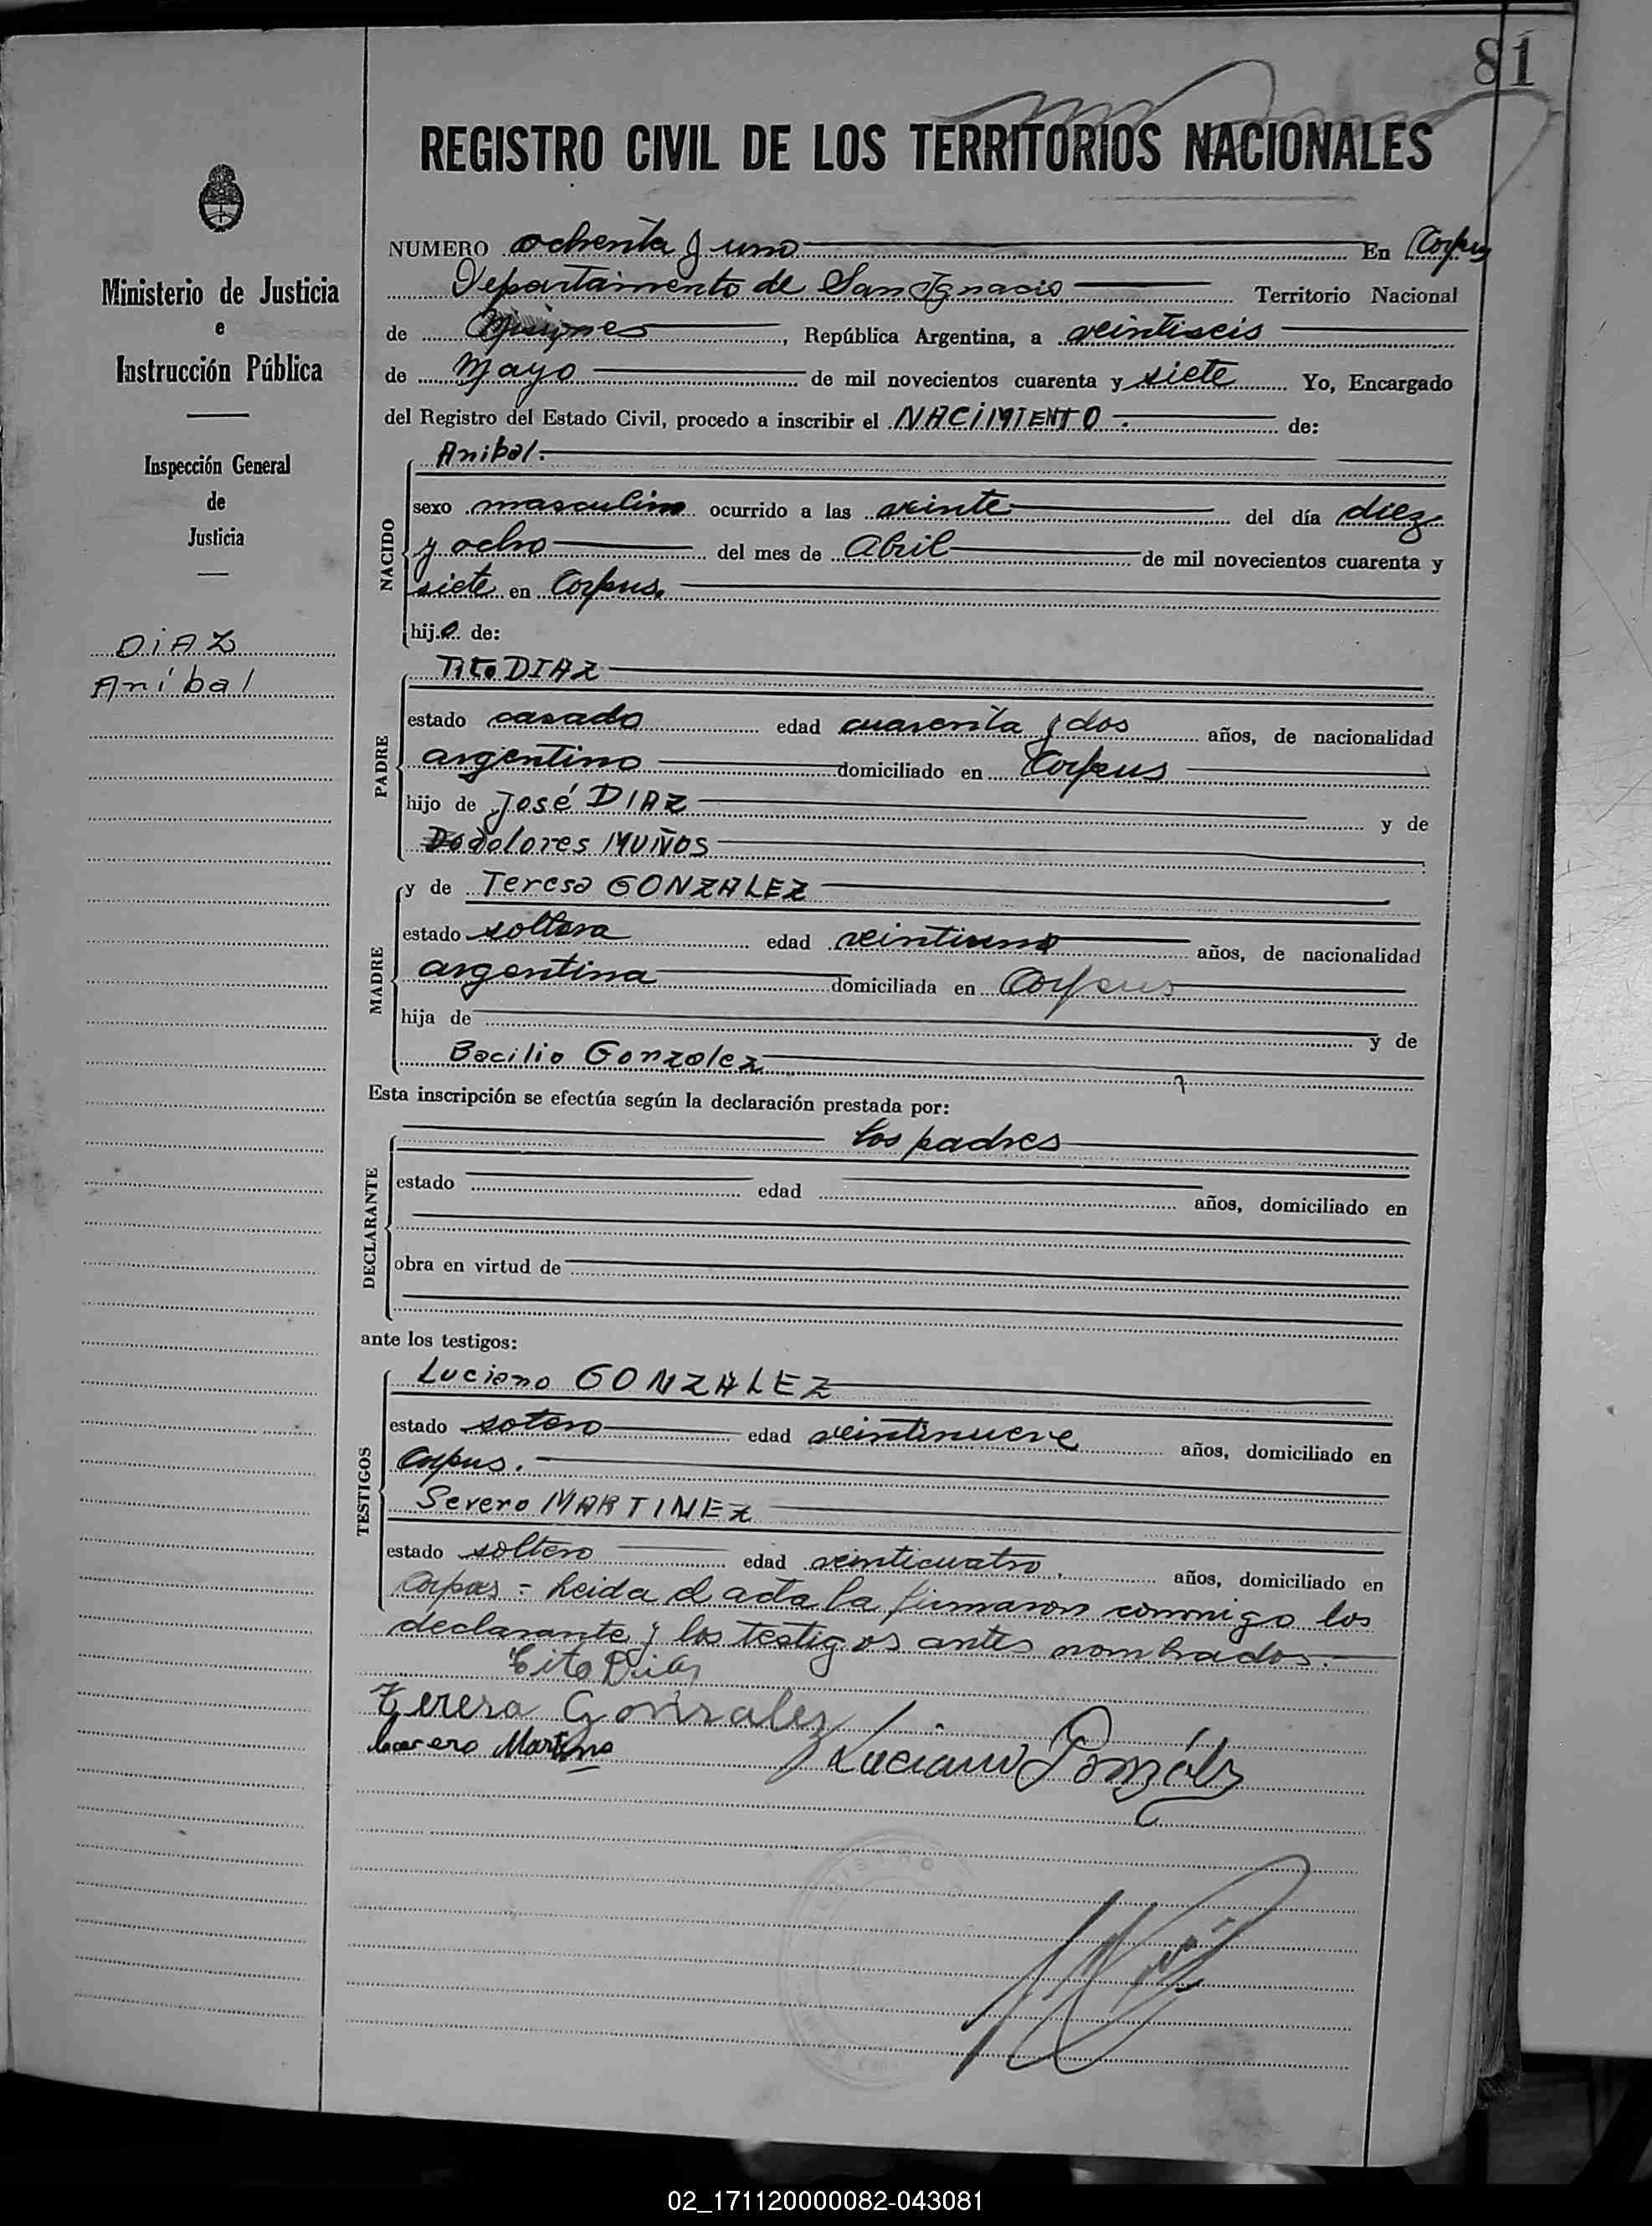 81
REGISTRO CIVIL DE LOS TERRITORIOS NACIONALES
Ministerio de Justicia
e
Instrucción Pública
Inspección General
de
Justicia
DIAZ
Anibal
NUMERO ochenta y uno En Corpus
Departamento de San Ignacio Territorio Nacional
de Misiones, República Argentina, a veintiseis
de Mayo de mil novecientos cuarenta y siete Yo, Encargado
del Registro del Estado Civil, procedo a inscribir el NACIMIENTO. de:
NACIDO
Anibal.
sexo masculino ocurrido a las veinte del día diez
y ocho del mes de Abril de mil novecientos cuarenta y
siete en Corpus.
hijo de:
PADRE
Tito DIAZ
estado casado edad cuarenta y dos años, de nacionalidad
argentino domiciliado en Corpus
hijo de José DIAZ y de
Dodolores MUÑOS
MADRE
y de Teresa GONZALEZ
estado soltera edad veintiuno años, de nacionalidad
argentina domiciliada en Corpus
hija de y de
Bacilio Gonzalez
Esta inscripción se efectúa según la declaración prestada por:
DECLARANTE
los padres
estado edad años, domiciliado en
obra en virtud de
ante los testigos:
TESTIGOS
Luciano GONZALEZ
estado sotero edad veintinueve años, domiciliado en
Corpus.
Severo MARTINEZ
estado soltero edad veinticuatro años, domiciliado en
Corpus - Leida el acta la firmaron conmigo los
declarante y los testigos antes nombrados.
Tito Diaz
Teresa Gonzalez
Luciano Gonzáles
02_171120000082-043081